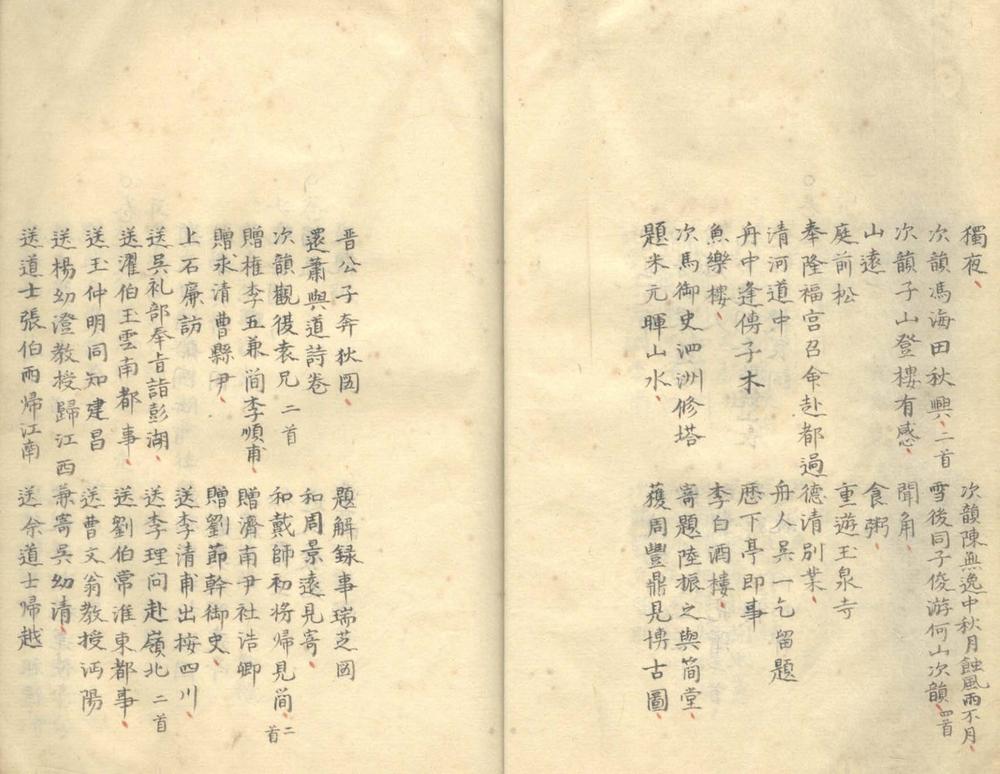 獨夜
次韻陳無逸中秋月蝕風雨不月
次韻馮海田秋興二首
雪後同子俊游何山次韻四首
次韻子山登樓有感
聞角
山遠
食粥
庭前松
重遊玉泉寺
奉隆福宮召命赴都過德清別業
清河道中
舟人吳一乞留題
舟中逢傅子木
歷下亭即事
魚樂樓
李白酒樓
次馬御史泗洲修塔
寄題陸振之與簡堂
題米元暉山水
獲周豐鼎見博古圖
晋公子奔狄图
題解録事瑞芝图
還蕭與道詩卷
和周景遠見寄
次韻觀復袁兄二首
和戴師初將帰見简二首
贈権李五兼简李順甫
贈濟南尹社浩卿
贈求清曹縣尹
贈劉節幹御史
上石廉訪
送李清甫出按四川
送吳礼部奉旨詣彭湖
送李理问赴嶺北二首
送濯伯玉雲南都事
送劉伯常淮東都事
送玉仲明同知建昌
送曹文翁教授沔陽
送楊幼澄教授歸江西兼寄吳幼清
送道士張伯雨帰江南
送余道士帰越